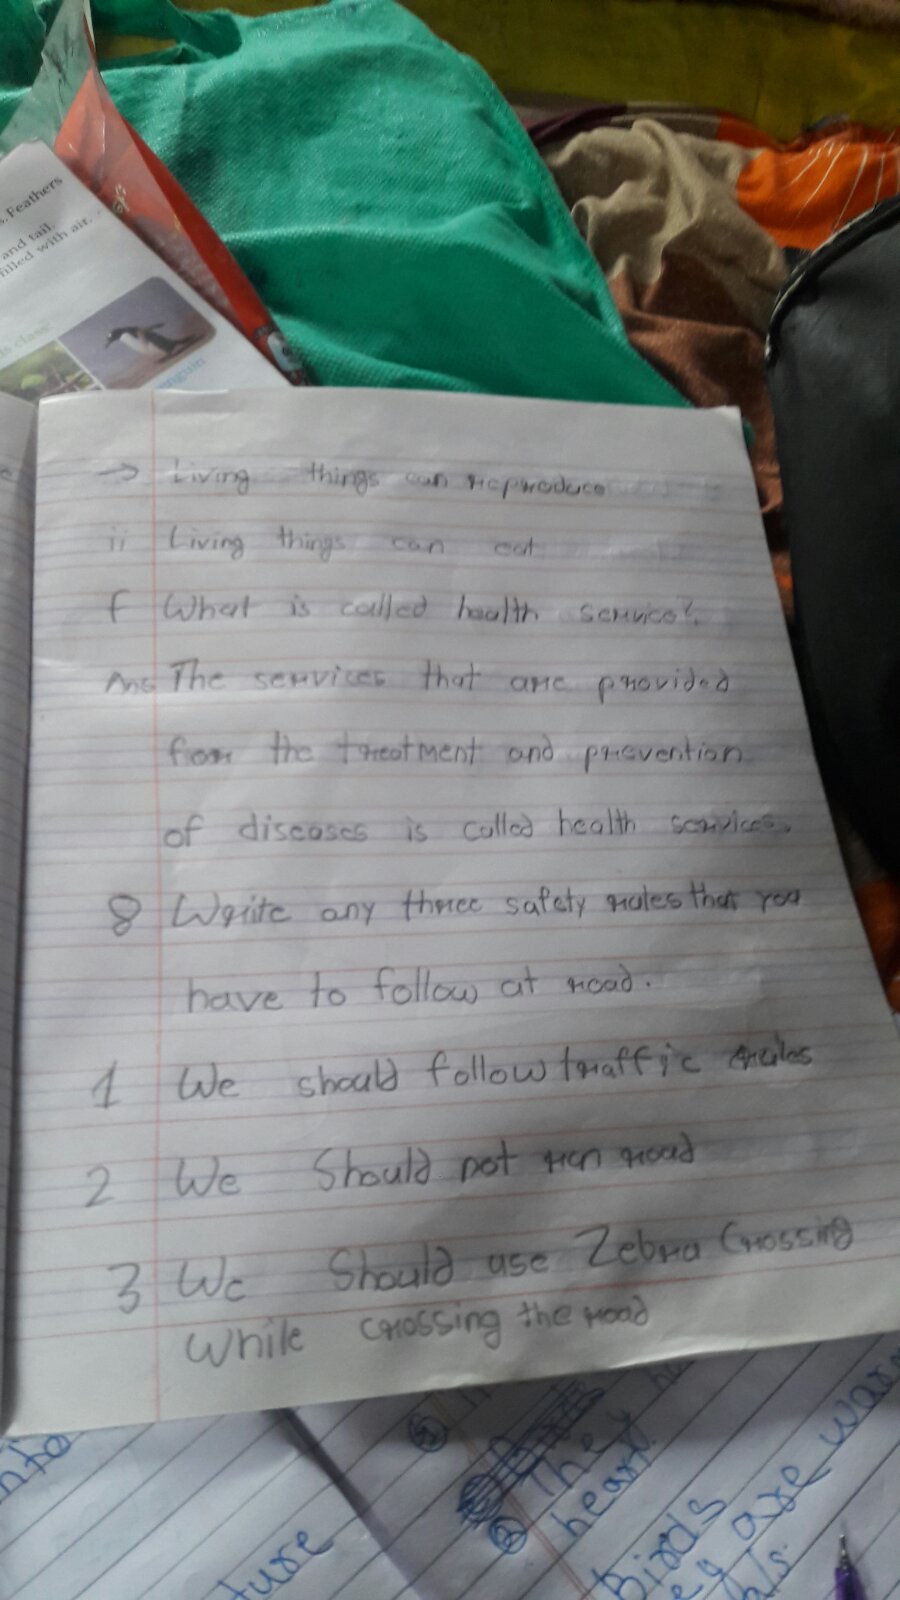 s. Feathers
and tail.
filled with air.
→ Living things can reproduce
ii Living things can eat
f What is called health service?
Ans The services that are provided
for the treatment and prevention
of diseases is called health services.
g Write any three safety rules that you
have to follow at road.
1 We should follow traffic rules
2 We Should not run road
3 We Should use Zebra Crossing
While crossing the road
They
heart.
Birds
are warm
ture